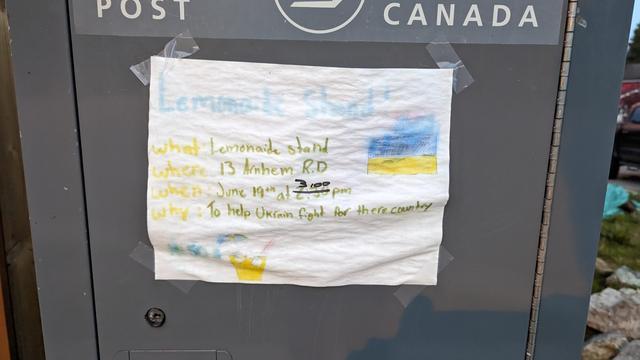 POST CANADA
Lemonade Stand!
what: Lemonaide stand
where: 13 Arnhem R.D
when: June 19th at 3:00 pm
why: To help Ukrain fight for there country